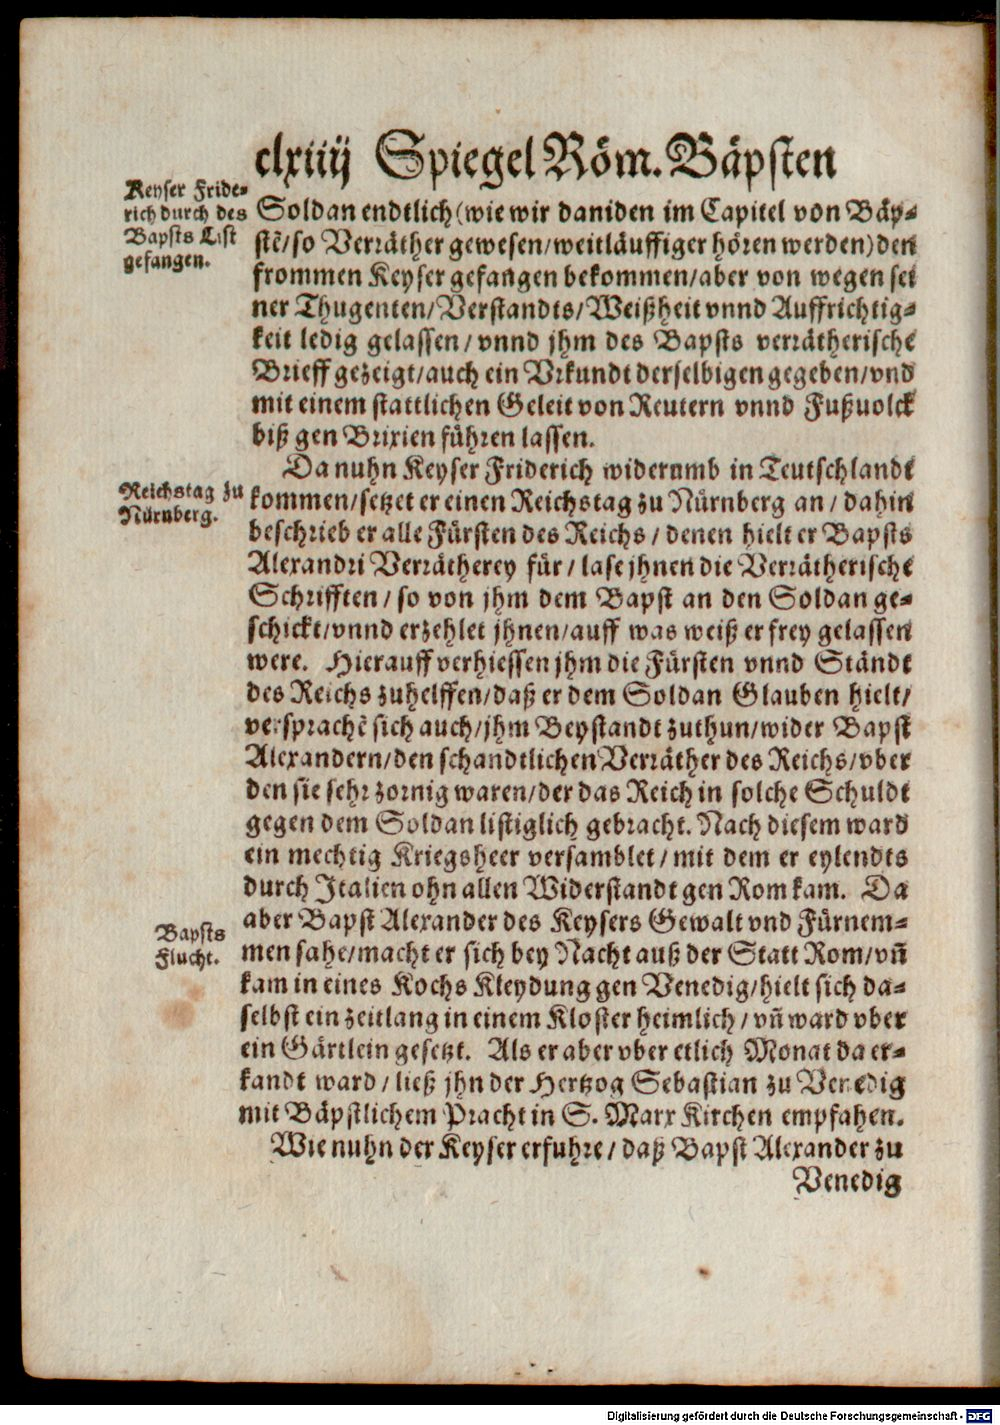 clxiiij Spiegel Röm. Bäpsten
Keyser Fride-
rich durch des
Bapsts List
gefangen.
Soldan endtlich (wie wir daniden im Capitel von Bäp-
stẽ/so Verräther gewesen/weitläuffiger hören werden) den
frommen Keyser gefangen bekommen/aber von wegen sei
ner Thugenten/Verstandts/Weißheit vnnd Auffrichtig-
keit ledig gelassen/vnnd jhm des Bapsts verrätherische
Brieff gezeigt/auch ein Vrkundt derselbigen gegeben/vnd
mit einem stattlichen Geleit von Reutern vnnd Fußuolck
biß gen Brixien führen lassen.
Da nuhn Keyser Friderich widerumb in Teutschlandt
Reichstag zu
Nürnberg.
kommen/setzet er einen Reichstag zu Nürnberg an/dahin
beschrieb er alle Fürsten des Reichs/denen hielt er Bapsts
Alexandri Verrätherey für/lase jhnen die Verrätherische
Schrifften/so von jhm dem Bapst an den Soldan ge-
schickt/vnnd erzehlet jhnen/auff was weiß er frey gelassen
were. Hierauff verhiessen jhm die Fürsten vnnd Ständt
des Reichs zuhelffen/daß er dem Soldan Glauben hielt/
versprachẽ sich auch/jhm Beystandt zuthun/wider Bapst
Alexandern/den schandtlichen Verräther des Reichs/vber
den sie sehr zornig waren/der das Reich in solche Schuldt
gegen dem Soldan listiglich gebracht. Nach diesem ward
ein mechtig Kriegsheer versamblet/mit dem er eylendts
durch Italien ohn allen Widerstandt gen Rom kam. Da
aber Bapst Alexander des Keysers Gewalt vnd Fürnem-
Bapsts
Flucht.
men sahe/macht er sich bey Nacht auß der Statt Rom/vñ
kam in eines Kochs Kleydung gen Venedig/hielt sich da-
selbst ein zeitlang in einem Kloster heimlich/vñ ward vber
ein Gärtlein gesetzt. Als er aber vber etlich Monat da er-
kandt ward/ließ jhn der Hertzog Sebastian zu Venedig
mit Bäpstlichem Pracht in S. Marx Kirchen empfahen.
Wie nuhn der Keyser erfuhre/daß Bapst Alexander zu
Venedig
Digitalisierung gefördert durch die Deutsche Forschungsgemeinschaft - DFG